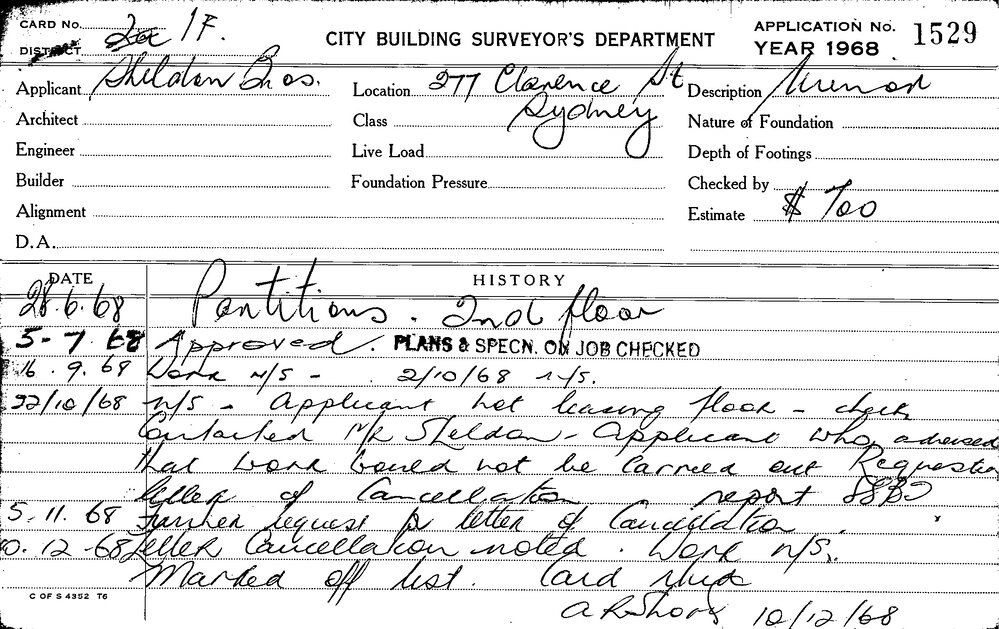 CARD No. 1F.
DISTRICT
CITY BUILDING SURVEYOR'S DEPARTMENT
APPLICATION No. 1529
YEAR 1968
Applicant Sheldon Bros.
Location 277 Clarence St
Sydney
Description Minor
Architect
Class
Nature of Foundation
Engineer
Live Load
Depth of Footings
Builder
Foundation Pressure
Checked by
Alignment
Estimate $ 700
D.A.
DATE HISTORY
28.6.68 Partitions. 2nd floor
5-7.68 Approved. PLANS & SPECN. ON JOB CHECKED
16.9.68 Work N/S - 2/10/68 N/S.
22/10/68 N/S - Applicant not leasing floor - check
Contacted Mr Sheldon - Applicant who advised
that work would not be carried out Requested
letter of Cancellation report
5.11.68 Further request for letter of Cancellation
10.12.68 Letter Cancellation noted. Work N/S.
Marked off list. Card
10/12/68
C OF S 4352 T6